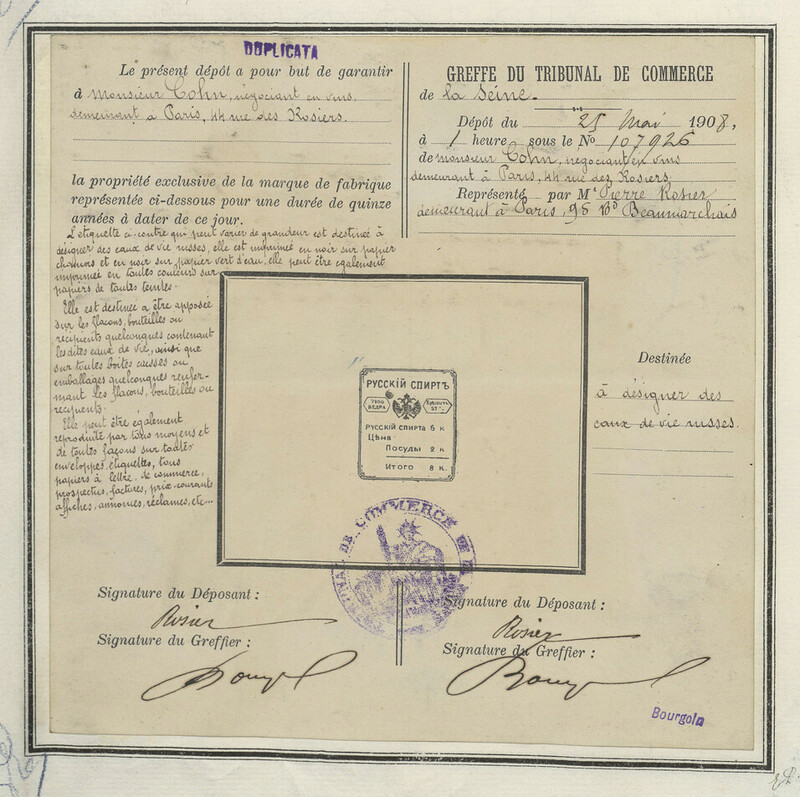 DUPLICATA
Le présent dépôt a pour but de garantir
à Monsieur Cohn, négociant en vins,
demeurant à Paris, 44 rue des Rosiers.
la propriété exclusive de la marque de fabrique
représentée ci-dessous pour une durée de quinze
années à dater de ce jour.
L'étiquette ci-contre qui peut varier de grandeur est destinée à
désigner des eaux de vie russes, elle est imprimée en noir sur papier
chamois et en noir sur papier vert d'eau, elle peut être également
imprimée en toutes couleurs sur
papiers de toutes teintes.
Elle est destinée à être apposée
sur les flacons, bouteilles ou
récipients quelconques contenant
les dites eaux de vie, ainsi que
sur toutes boites caisses ou
emballages quelconques renfer-
mant les flacons, bouteilles ou
récipients.
Elle peut être également
reproduite par tous moyens et
de toutes façons sur toutes
enveloppes, étiquettes, tous
papiers à lettre, de commerce,
prospectus, factures, prix-courants
affiches, annonces, réclames, etc...
GREFFE DU TRIBUNAL DE COMMERCE
de la Seine.
Dépôt du 25 Mai 1908,
à 1 heure sous le No 107926
de monsieur Cohn, négociant en vins
demeurant à Paris, 44 rue des Rosiers
Représenté par Mr Pierre Rosier
demeurant à Paris, 98 Bd Beaumarchais
РУССКІЙ СПИРТЪ
ВЕДРА
РУССКІЙ СПИРТА 6 К
ЦѢНА
ПОСУДЫ 2 К
ИТОГО 8 К.
Destinée
à désigner des
eaux de vie russes.
TRIBUNAL DE COMMERCE DE LA SEINE
Signature du Déposant :
Rosier
Signature du Greffier :
Signature du Déposant :
Rosier
Signature du Greffier :
Bourgoin